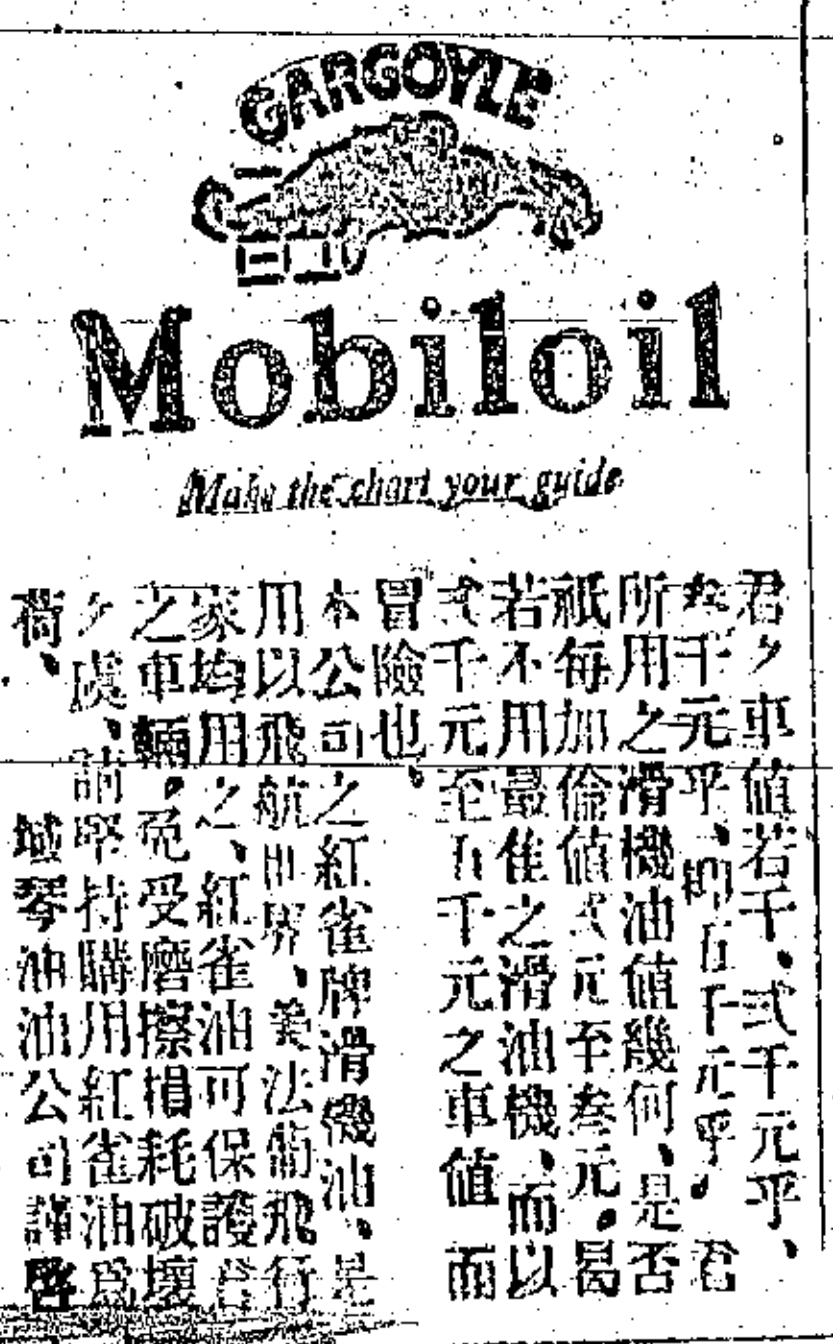 GARGOYLE
Mobiloil
Make the chart your guide
君夕車値若千、弍千元乎、
叁千元乎、抑五千元乎。君
所用之滑機油値幾何、是否
祇每加倫値弍元至叁元。曷
若不用最佳之滑油機、而以
弍千元至五千元之車値而
冒險也、
本公司之紅雀牌滑機油、是
用以飛航世界、美法葡飛行
家均用之、紅雀油可保護君
之車輛。免受磨擦損耗破壞
夕虞、請堅持購用紅雀油爲
荷、
域琴油油公司謹啓